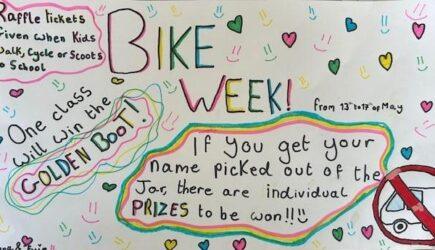 Raffle tickets
Given when Kids
Walk, Cycle or Scoots
to School
BIKE
WEEK!
from 13th to 17th of May
One class
will win the
GOLDEN BOOT!
If you get your
name picked out of the
Jar, there are individual
PRIZES to be won!!!